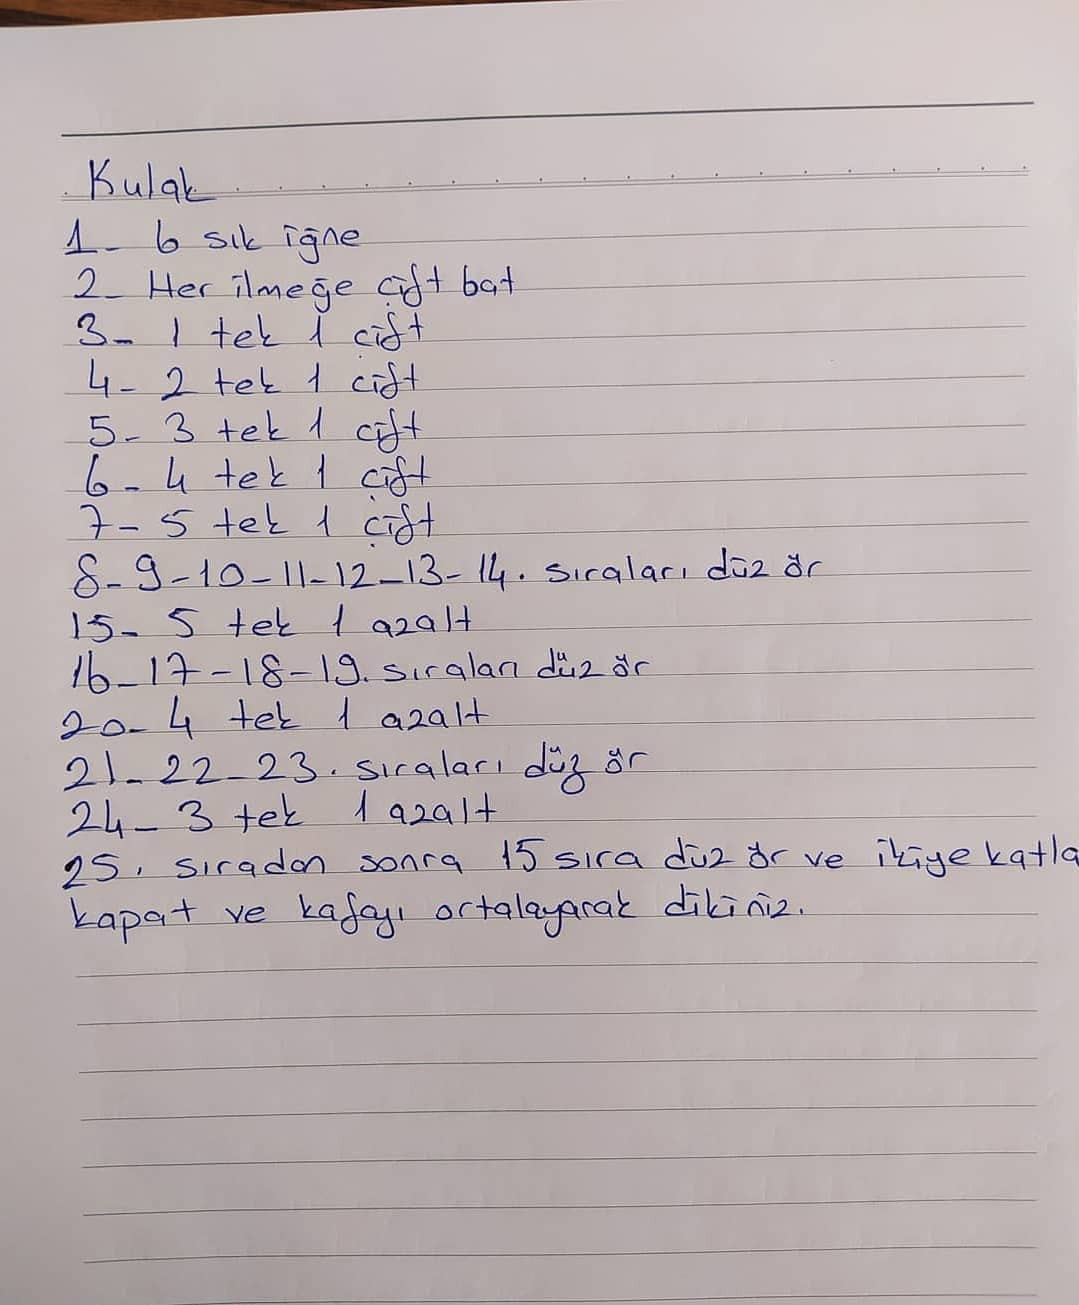 Kulak
1- 6 sık iğne
2- Her ilmeğe çift bat
3- 1 tek 1 çift
4- 2 tek 1 çift
5- 3 tek 1 çift
6- 4 tek 1 çift
7- 5 tek 1 çift
8-9-10-11-12-13-14. sıraları düz ör
15- 5 tek 1 azalt
16-17-18-19. sıraları düz ör
20- 4 tek 1 azalt
21-22-23. sıraları düz ör
24- 3 tek 1 azalt
25. sıradan sonra 15 sıra düz ör ve ikiye katla
kapat ve kafayı ortalayarak dikiniz.